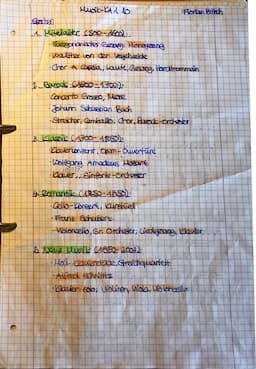 Musik KA 10 Florian
1. Mittelalter (500-1600):
Gesang, Minnegesang
Walther von der Vogelweide
Chor A Capella, Laute, Gesang, Handtrommeln
2. Barock (1600-1700):
Concerto Grosso, Messe
Johann Sebastian Bach
Streicher, Cembalo, Chor, Barock-Orchester
3. Klassik (1700-1850):
Klavierkonzert, Opern-Ouvertüre
Wolfgang Amadeus Mozart
Klavier, Sinfonie-Orchester
4. Romantik
Cello-Konzert, Kunstlied
Franz Schubert
Violoncello, Sr. Orchester, Liedgesang, Klavier
5. Neue Musik
Streichquartett
Alfred Schnittke
Klavier solo, Violinen, Viola, Violoncello